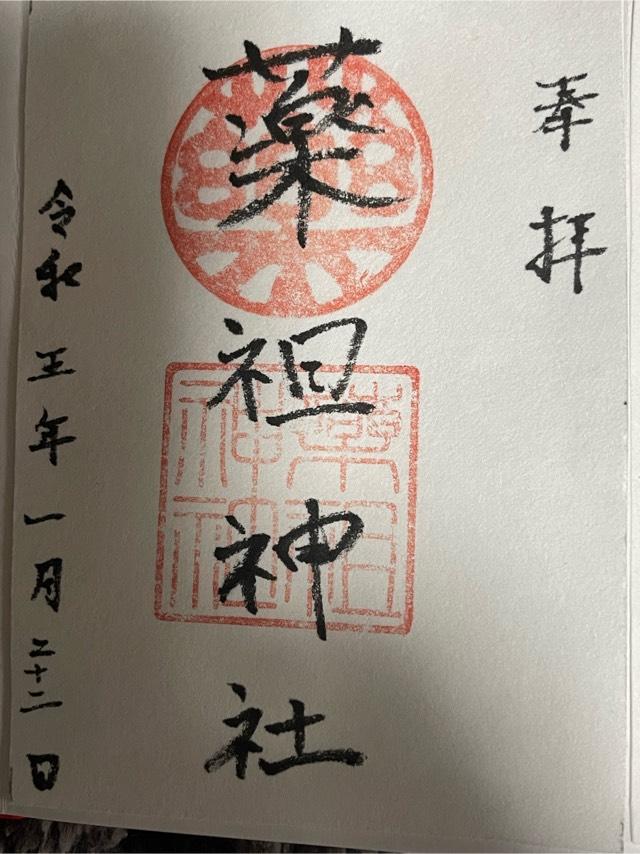 奉拝
薬祖神社
薬祖神社
令和五年一月二十二日